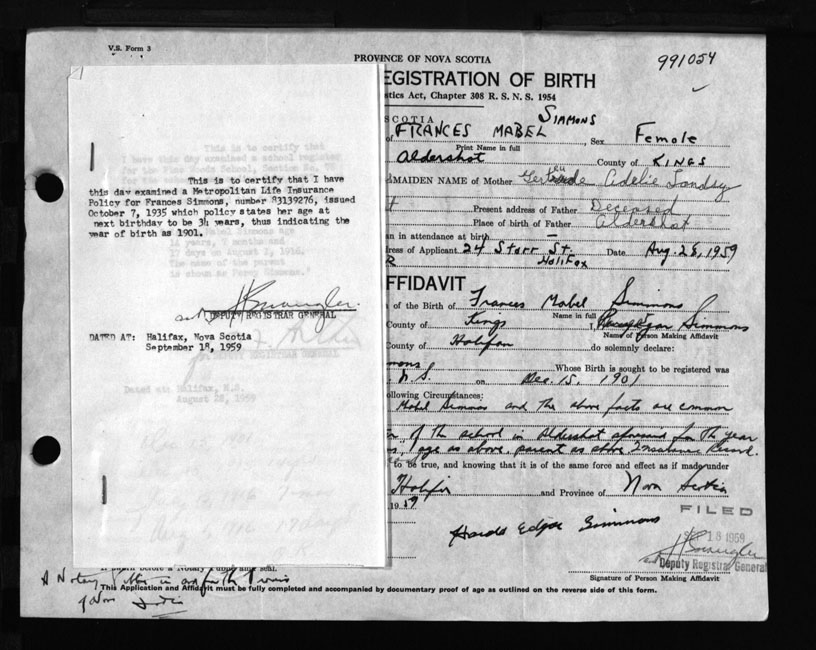 V.S. Form 3
991054
PROVINCE OF NOVA SCOTIA
REGISTRATION OF BIRTH
stics Act, Chapter 308 R. S. N. S. 1954
SCOTIA
SIMMONS
FRANCES MABEL Sex Female
Print Name in full
Aldershot County of KINGS
MAIDEN NAME of Mother Adelie
Present address of Father Deceased
Place of birth of Father Aldershot
an in attendance at birth
ress of Applicant 24 Starr St. Date Aug. 28, 1959
Halifax
This is to certify that I have
this day examined a Metropolitan Life Insurance
Policy for Frances Simmons, number 83139276, issued
October 7, 1935 which policy states her age at
next birthday to be 34 years, thus indicating the
year of birth as 1901.
DEPUTY REGISTRAR GENERAL
DATED AT: Halifax, Nova Scotia
September 18, 1959
Dated at: Halifax, N.S.
August 28, 1959
FFIDAVIT
of the Birth of Frances Mabel Simmons
Name in full
County of Kings I, Simmons
Name of Person Making Affidavit
County of Halifax do solemnly declare:
mons Whose Birth is sought to be registered was
N.S. on Dec. 15, 1901
ollowing Circumstances:
Mabel Simmons and the above facts are common
of the school in Aldershot aforesaid for the year
age as above, parent as above Insurance Record.
to be true, and knowing that it is of the same force and effect as if made under
Halifax and Province of Nova Scotia
19
FILED
Harold Edgar Simmons
18 1959
Deputy Registrar General
Signature of Person Making Affidavit
A Notary Public in and for the Province
of Nova Scotia
This Application and Affidavit must be fully completed and accompanied by documentary proof of age as outlined on the reverse side of this form.